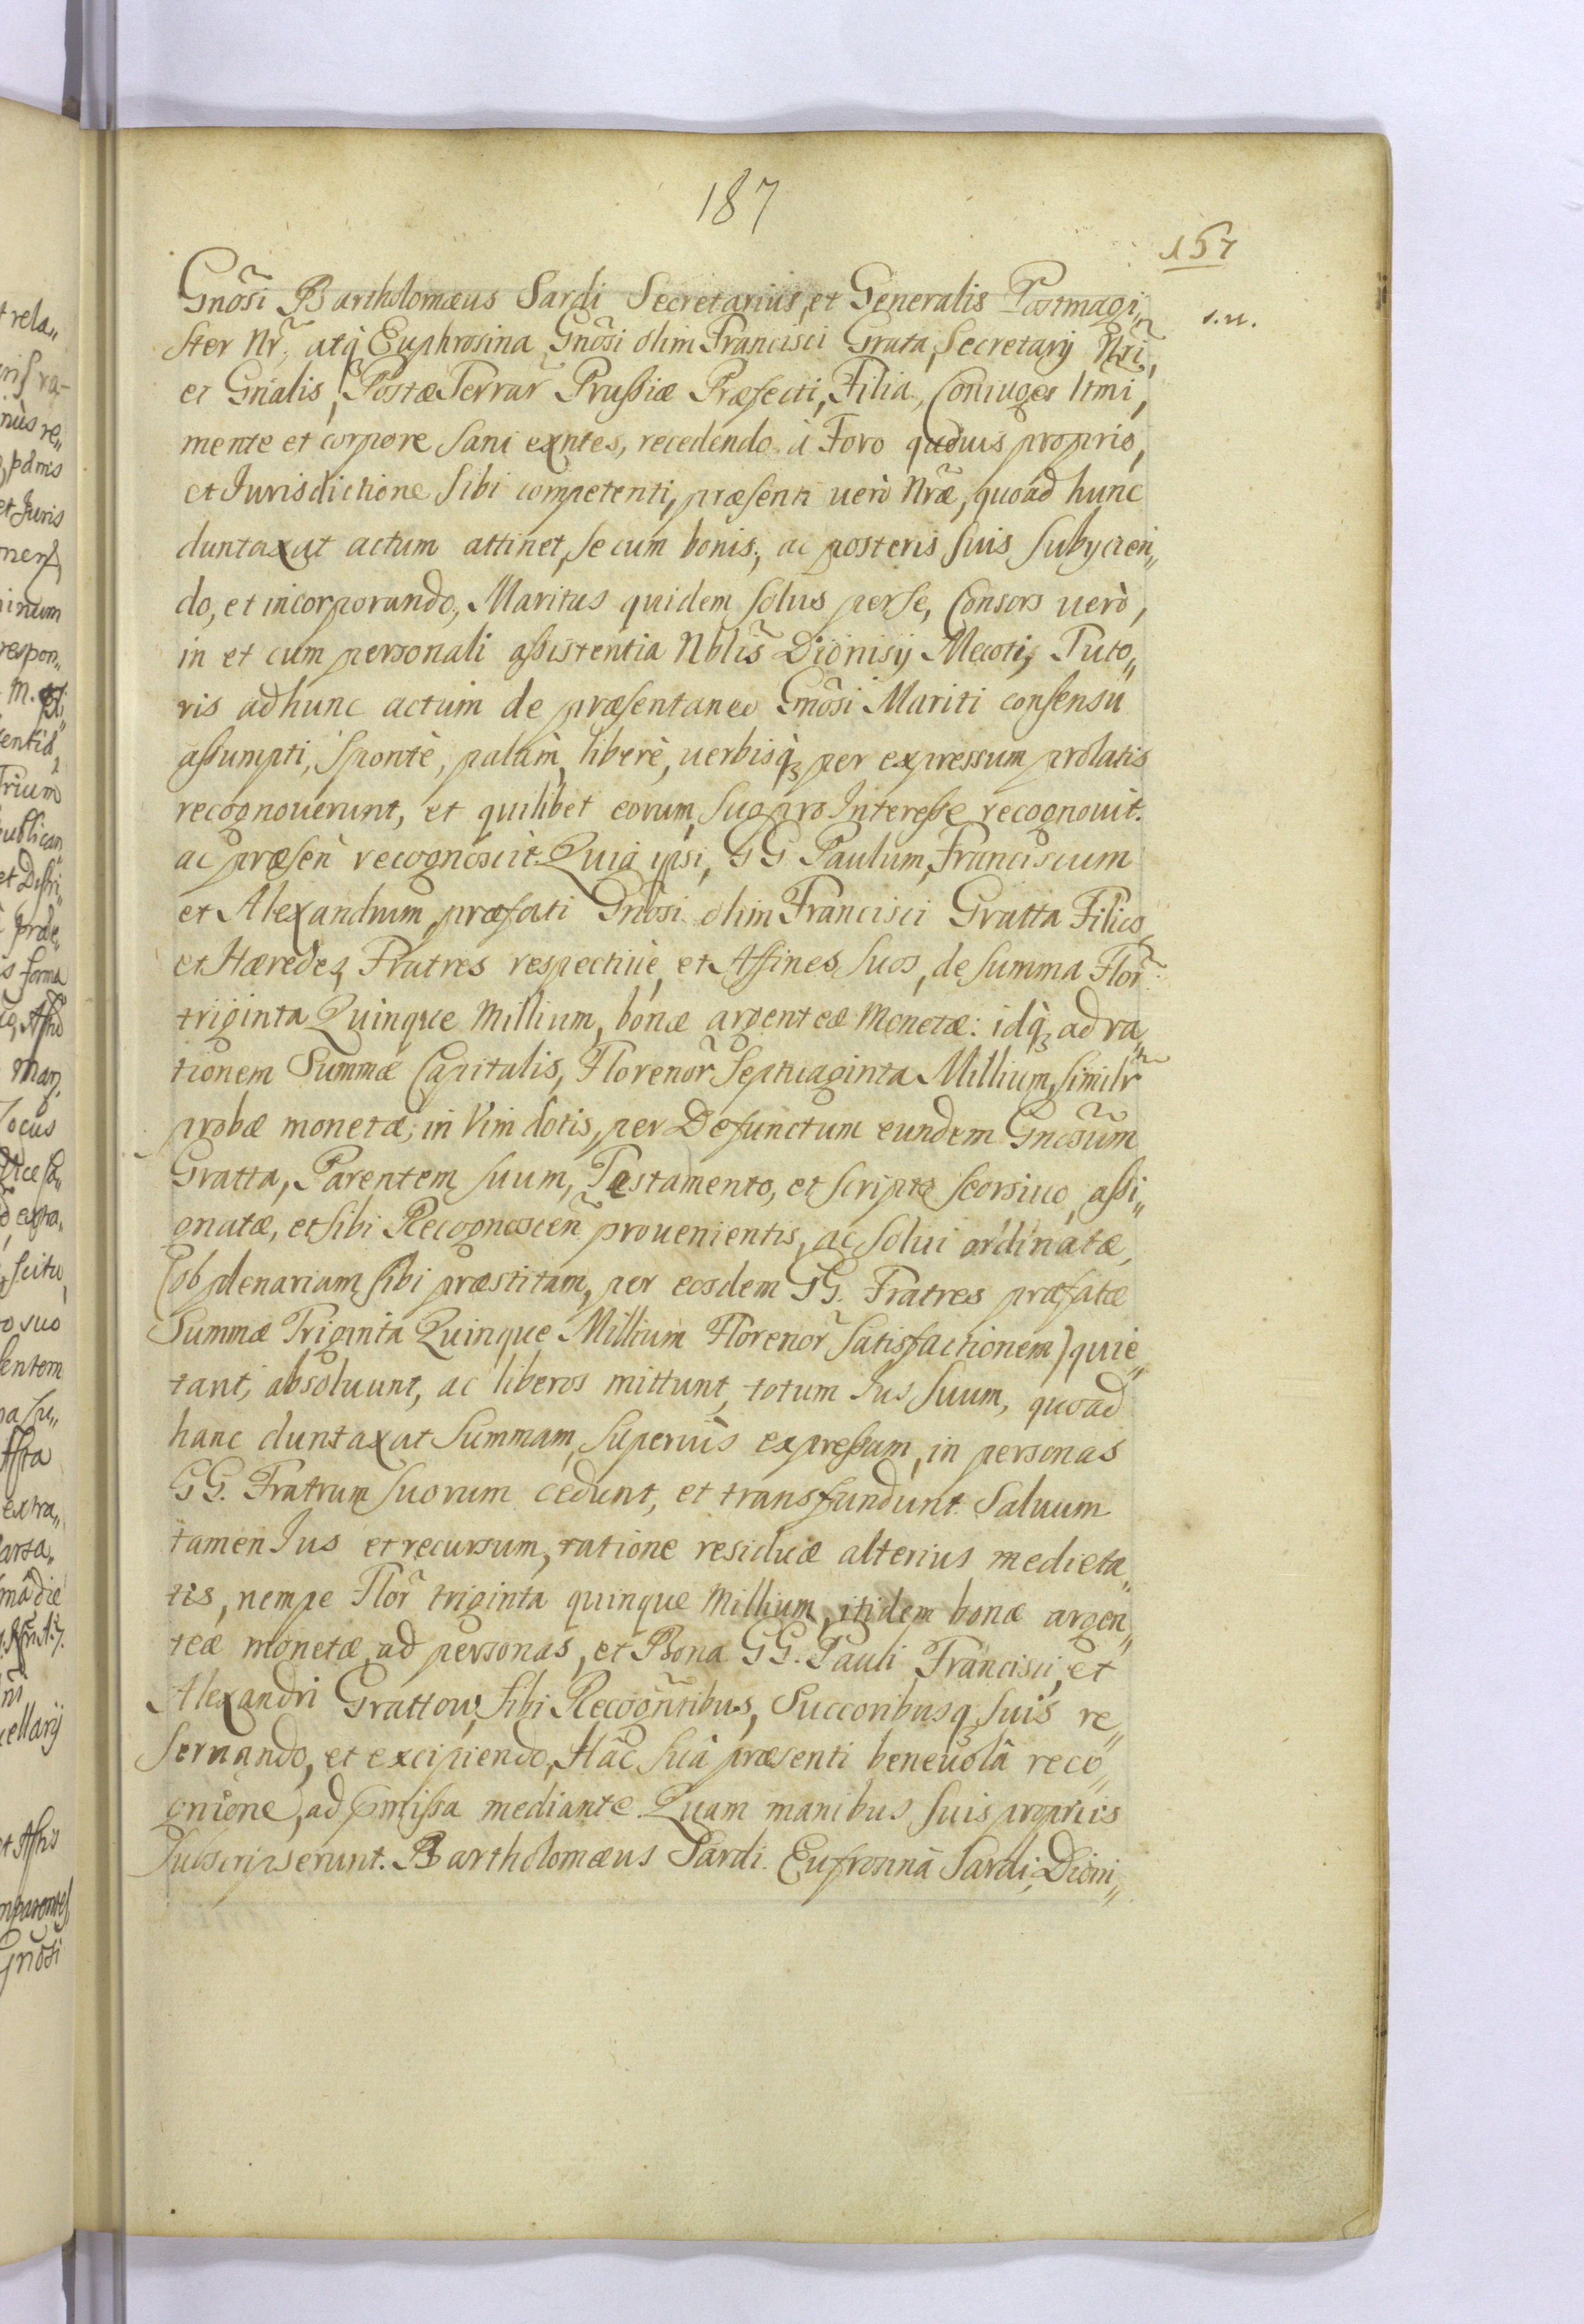 187
157
Gnõsi Bartholomæus Sardi Secretarius, et Generalis Postmagi„
s. n.
ster Nr̃, atq̀ Euphrosina Gnõsi olim Francisci Grata, Secretarij Nr̃i,
et Gnãlis, Postæ Terrar̃ Prussiæ Præfecti, Filia, Coniuges ltmi,
mente et corpore sani exntes, recedendo à Foro quouis proprio,
et Iurisdictione sibi competenti, præsenti uerò Nr̃æ, quoad hunc
duntaxat actum attinet, se cum bonis, ac posteris suis subijcien„
do, et incorporando, Maritus quidem solus per se, Consors uerò,
in et cum personali assistentia Nblĩs Dionisij Mecoti, Tuto„
ris ad hunc actum de præsentaneo Gnõsi Mariti consensu
assumpti, spontè, palàm, liberè, uerbisq̀ꝫ per expressum prolatis
recognouerunt, et quilibet eorum, suo pro Interesse recognouit.
ac præsen̄ recognoscit. Quia ipsi, GG Paulum, Franciscum
et Alexandrum, præfati Gnõsi olim Francisci Gratta Filios,
et Hæredes, Fratres respectiuè, et Affines suos, de summa Flor̃
triginta Quinque Millium, bonæ argenteæ Monetæ: idq̀ꝫ ad ra„
tionem Summæ Capitalis, Florenor̃ Septuaginta Millium, similr̃
probæ monetæ, in Vim dotis, per Defunctum eundem Gnõsum
Gratta, Parentem suum, Testamento, et scripto seorsiuo, assi„
gnatæ, et sibi Recognoscen̄ prouenientis, ac solui ordinatæ,
(ob plenariam sibi præstitam, per eosdem GG. Fratres præfatæ
Summæ Triginta Quinque Millium Florenor̃ satisfactionem) quie„
tant, absoluunt, ac liberos mittunt, totum Ius suum, quoad
hanc duntaxat Summam, superiùs expressam, in personas
GG. Fratrum suorum cedunt, et transfundunt. Saluum
tamen Ius et recursum, ratione residuæ alterius medieta„
tis, nempe Flor̃ triginta quinque Millium, itidem bonæ argen„
teæ monetæ, ad personas, et Bona GG. Pauli, Francisci, et
Alexandri Grattow, sibi Recogñtibus, Succoribusqꝫ suis re„
seruando, et excipiendo, Hâc suâ præsenti beneuolâ reco„
gnĩone, ad præmissa mediante. Quam manibus suis proprijs
subscripserunt. Bartholomæus Sardi. Eufrosina Sardi, Dioni„